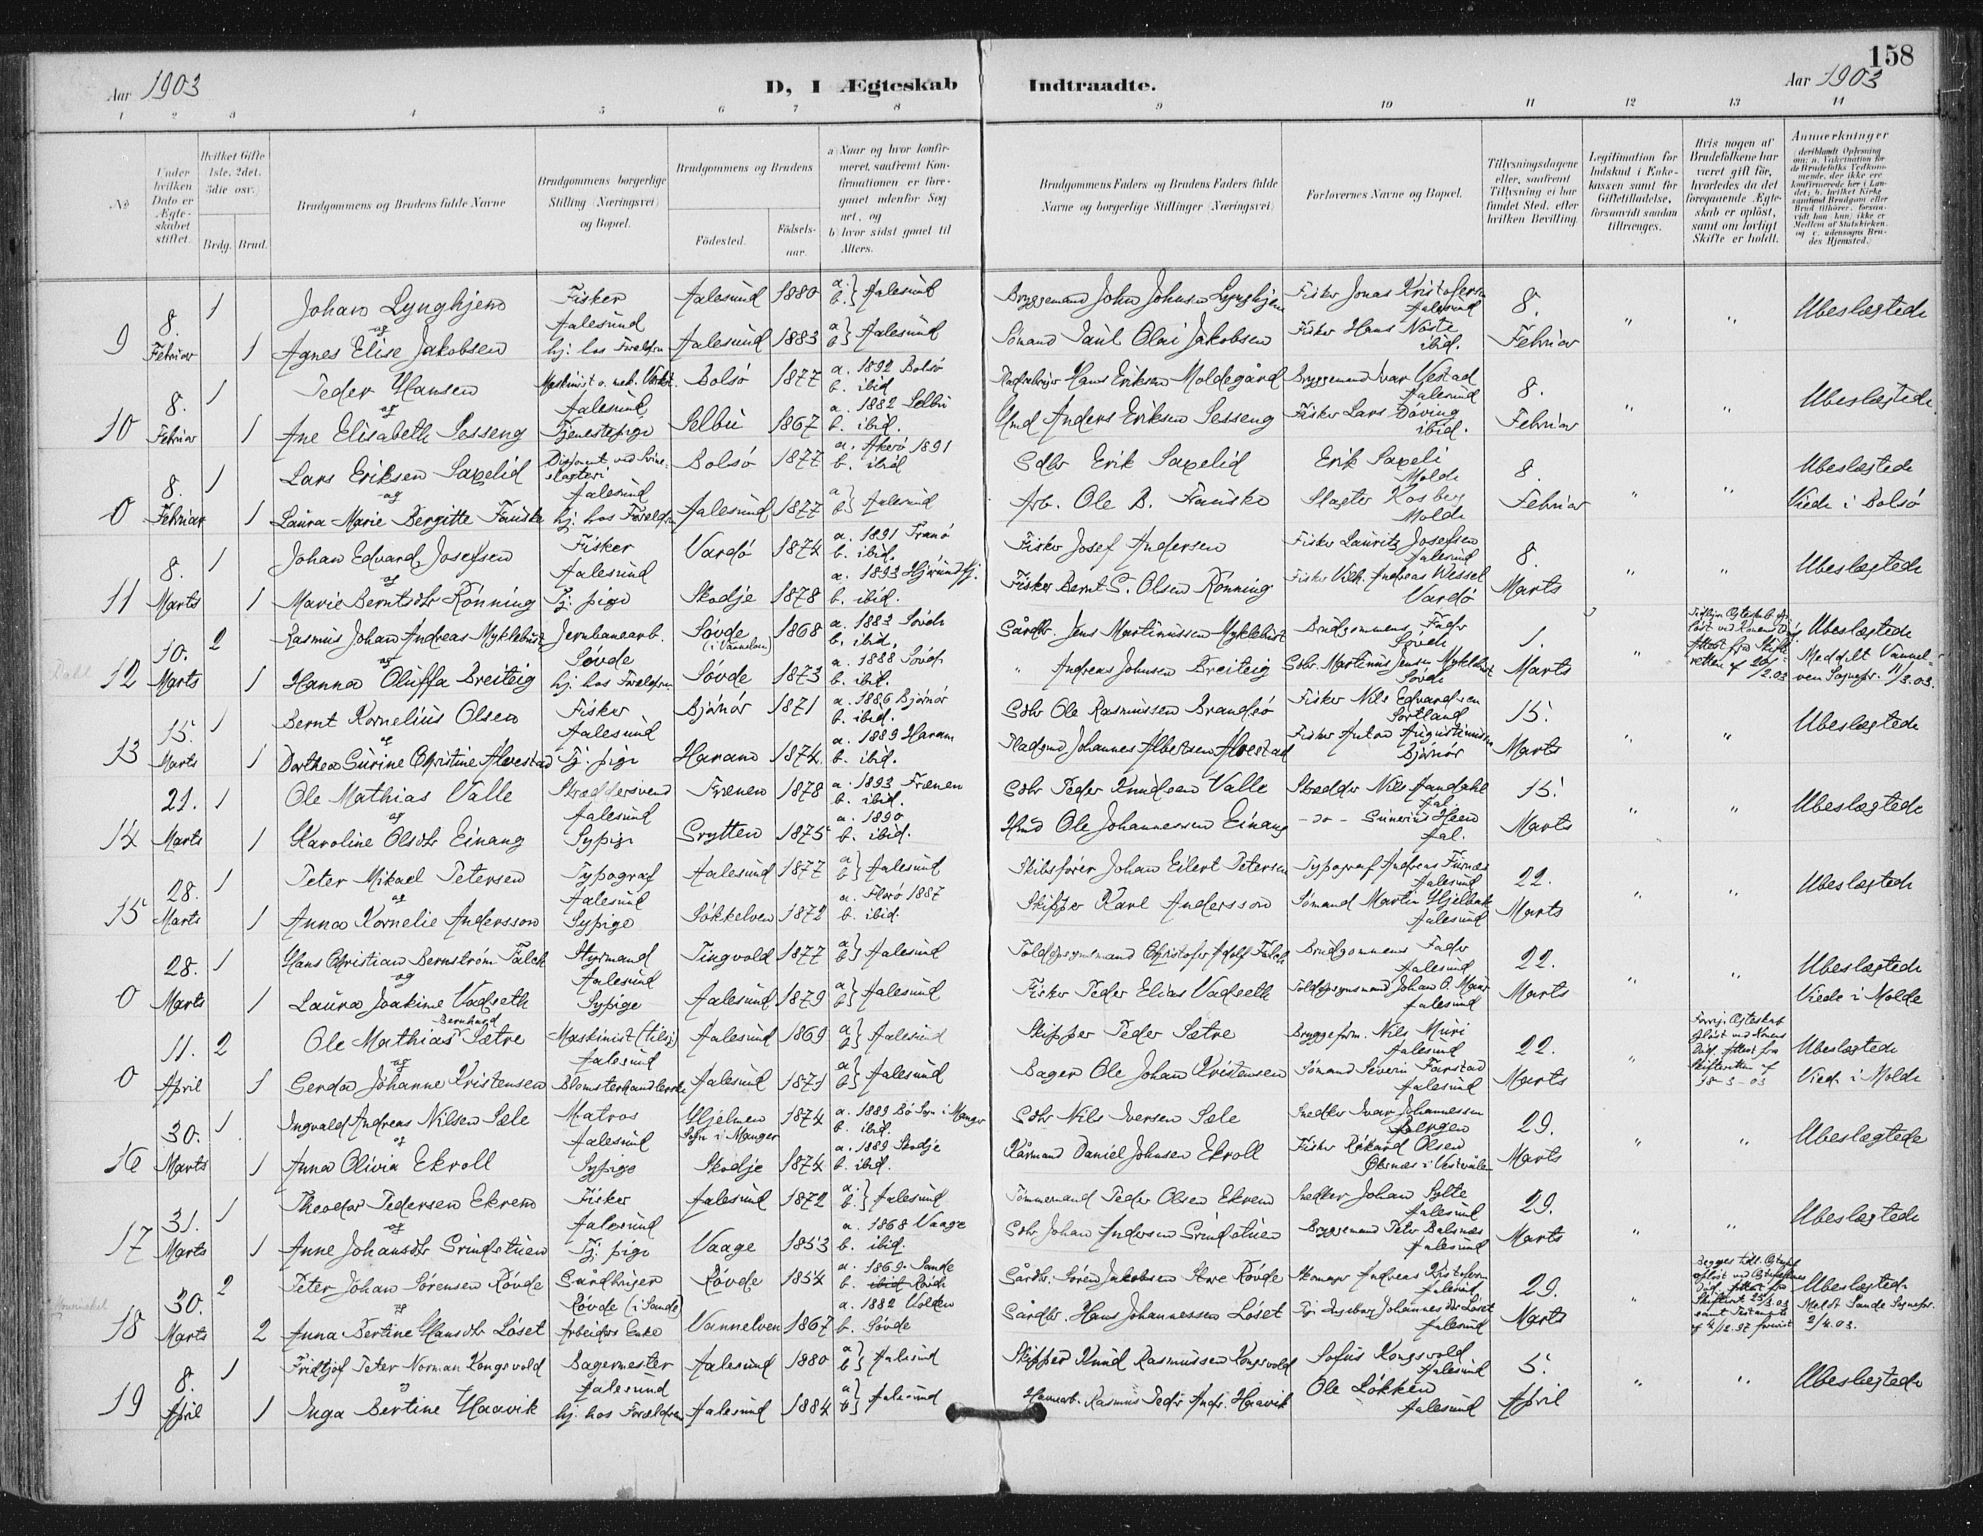 158
Aar 1903
D, I Ægteskab Indtraadte.
Aar 1903
1 2 3 4 5 6 7 8 9 10 11 12 13 14
No
Under hvilken Dato er Ægteskabet stiftet.
Hvilket Gifte (1ste, 2det, 3die osv.)
Brdg. Brud.
Brudgommens og Brudens fulde Navne
Brudgommens borgerlige Stilling (Næringsvei) og Bopæl.
Brudgommens og Brudens
Fødested. Fødselsaar.
a) Naar og hvor konfirmeret, saafremt Konfirmationen er foregaaet udenfor Sognet, og
b) hvor sidst gaaet til Alters.
Brudgommens Faders og Brudens Faders fulde Navne og borgerlige Stillinger (Næringsvei)
Forlovernes Navne og Bopæl.
Tillysningsdagene eller, saafremt Tillysning ei har fundet Sted, efter hvilken Bevilling.
Legitimation for Indskud i Enkekassen samt for Giftetilladelse, forsaavidt saadan tiltrænges.
Hvis nogen af Brudefolkene har været gift før, hvorledes da det foregaaende Ægteskab er opløst, samt om lovligt Skifte er holdt.
Anmærkninger
9 8. Februar 1 Johan Lynghjem Fisker Aalesund Aalesund 1880 a. b. } Aalesund Bryggemand John Johnsen Lynghjem Fisker Jonas Kristofersen Aalesund 8. Februar " " Ubeslægtede
og
1 Agnes Elise Jakobsen hj. hos Forældrene Aalesund 1883 a b } Aalesund Sømand Paul Olai Jakobsen Fisker Hans Noste ibid.
10 8. Februar 1 Peder Hansen Maskinist v. mek. Værkst. Aalesund Bolsø 1877 a. 1892 Bolsø b. ibid. Hans Eriksen Moldegård Bryggemand Ivar Vestad Aalesund 8. Februar " " Ubeslægtede.
og
1 Ane Elisabeth Sesseng Tjenestepige Selbu 1867 a. 1882 Selbu b. ibid. Anders Eriksen Sesseng Fisker Lars Døving ibid.
0 8. Februar 1 Lars Eriksen Saxelid Disponent ved Svineslagteri Aalesund Bolsø 1877 a. Akerø 1891 b. ibid Gdbr Erik Saxelid Erik Saxeli Molde 8. Februar " " Ubeslægtede Viede i Bolsø
og
1 Laura Marie Bergitte Fauske hj. hos Forældrene Aalesund 1877 a b } Aalesund Arb. Ole B. Fauske Slagter Kosberg Molde
11 8. Marts 1 Johan Edvard Josefsen Fisker Aalesund Vardø 1874 a. 1891 Tranø b. ibid. Fisker Josef Andersen Fisker Lauritz Josefsen Aalesund 8. Marts " " Ubeslægtede
og
1 Marie Berntsdtr Rönning Tj. pige Skodje 1878 a. 1893 Hjørundfj. b. ibid. Fisker Bernt S. Olsen Rönning Fisker Vilh. Andreas Wessel Vardø
Dahl 12 10. Marts 2 Rasmus Johan Andreas Myklebust Jernbanearb. Søvde Søvde (i Vannelven) 1868 a. 1883 Søvde b. ibid. Gårdbr. Jens Martinussen Myklebust Brudgommens Fader Søvde 1. Marts " Ubeslægtede Meddelt Vannelven Sognepr. 11/3.03.
og
1 Hanna Oluffa Breiteig hj. hos Forældrene Søvde 1873 a. 1888 Søvde b. ibid. " Andreas Johnsen Breiteig Gdbr. Martinus Jensen Myklebust Søvde
13 15. Marts 1 Bernt Kornelius Olsen Fisker Aalesund Bjørnør 1871 a. 1886 Bjørnør b. ibid. Gdbr Ole Rasmussen Brandsø Fisker Nils Edvardsen Sortland 15. Marts " " Ubeslægtede
og
1 Dorthea Gurine Christine Alvestad Tj. pige Haram 1874. a. 1889 Haram b. ibid. Pladsmd Johannes Albertsen Alvestad Fisker Anton Augustinussen Bjørnør
14 21. Marts 1 Ole Mathias Valle Skræddersvend Aalesund Frænen 1878 a. 1893 Frænen b. ibid. Gdbr Peder Knudsen Valle Skrædder Nils Aandahl Aal. 15. Marts " " Ubeslægtede
og
1 Karoline Olsdtr Einang Sypige Grytten 1875 a. 1890 b. ibid. Hmd Ole Johannessen Einang - do - Gunerius Heen Aal.
15 28. Marts 1 Peter Mikael Petersen Typograf Aalesund Aalesund 1877 a b } Aalesund Skibsfører Johan Eilert Petersen Typograf Andreas Furnæs Aalesund 22. Marts " " Ubeslægtede
og
1 Anna Kornelie Andersson Sypige Søkkelven 1872 a. Florø 1887 b. ibid. Skipper Karl Andersson Sømand Martin Hjelbak Aalesund
0 28. Marts 1 Hans Christian Bernstrøm Falch Styrmand Aalesund Tingvold 1877 a b } Aalesund Toldopsynsmand Christofer Adolf Falch Brudgommens Fader Aalesund 22. Marts " " Ubeslægtede Viede i Molde
og
1 Laura Joakime Vadseth Sypige Aalesund 1879 a b } Aalesund Fisker Peder Elias Vadseth Toldopsynsmand Johan O. Aalesund
0 11. April 2 Ole Mathias Bernhard Sætre Maskinist Aalesund Aalesund 1869 a b } Aalesund Skipper Peder Sætre Bryggeform. Nils Muri Aalesund 22. Marts " Forrig. Ægteskab opløst ved Konens Død. Attest fra Skifteretten af 18-3-03 Ubeslægtede Vied. i Molde
og
1 Gerda Johanne Kristensen Blomsterhandlerske Aalesund 1871 a b } Aalesund Bager Ole Johan Kristensen Sømand Severin Farstad Aalesund
16 30. Marts 1 Ingvald Andreas Nilsen Sæle Matros Aalesund Hjelmen Sogn i Manger 1874 a. 1889 Bø Sogn i Manger b. ibid. Gdbr Nils Iversen Sæle Snedker Ivar Johannessen Bergen 29. Marts " " Ubeslægtede
og
1 Anna Olivia Ekroll Sypige Skodje 1874 a. 1889 Skodje b. ibid. Kårmand Daniel Johnsen Ekroll Fisker Rikard Olsen
17 31. Marts 1 Theodor Pedersen Ekrem Fisker Aalesund Aalesund 1872 a. b. } Aalesund Tømmermand Peder Olsen Ekrem Snedker Johan Sylte Aalesund 29. Marts " " Ubeslægtede
og
1 Anne Johansdtr Grindstuen Tj. pige Vaage 1853 a. 1868 Vaage b. ibid. Gdbr. Johan Andersen Grindstuen Bryggemand Peter Balsnæs Aalesund
18 30. Marts 2 Peter Johan Sørensen Røvde Gårdbruger Røvde (i Sande) Røvde 1854 a. 1869. Sande b. ibid Røvde Gårdbr. Søren Jakobsen Store Røvde Skomager Andreas Kristofersen Aalesund 29. Marts " Ubeslægtede Meldt Sande Sognepr. 2/4.03.
og
2 Anna Bertine Hansdtr Løset Arbeiders Enke Vannelven 1867 a. 1882 Volden b. Søvde Gårdbr. Hans Johannessen Løset Ingeborg Johannesdtr Løset Aalesund
19 8. April 1 Fridtjof Peter Norman Kongsvold Bagermester Aalesund Aalesund 1880 a b } Aalesund Skipper Knud Rasmussen Kongsvold Sofus Kongsvold Aalesund 5. April " " Ubeslægtede
og
1 Inga Bertine Haavik hj. hos Forældrene Aalesund 1884 a b } Aalesund Havnearb. Rasmus Peder Andr. Haavik Ole Løkken Aalesund